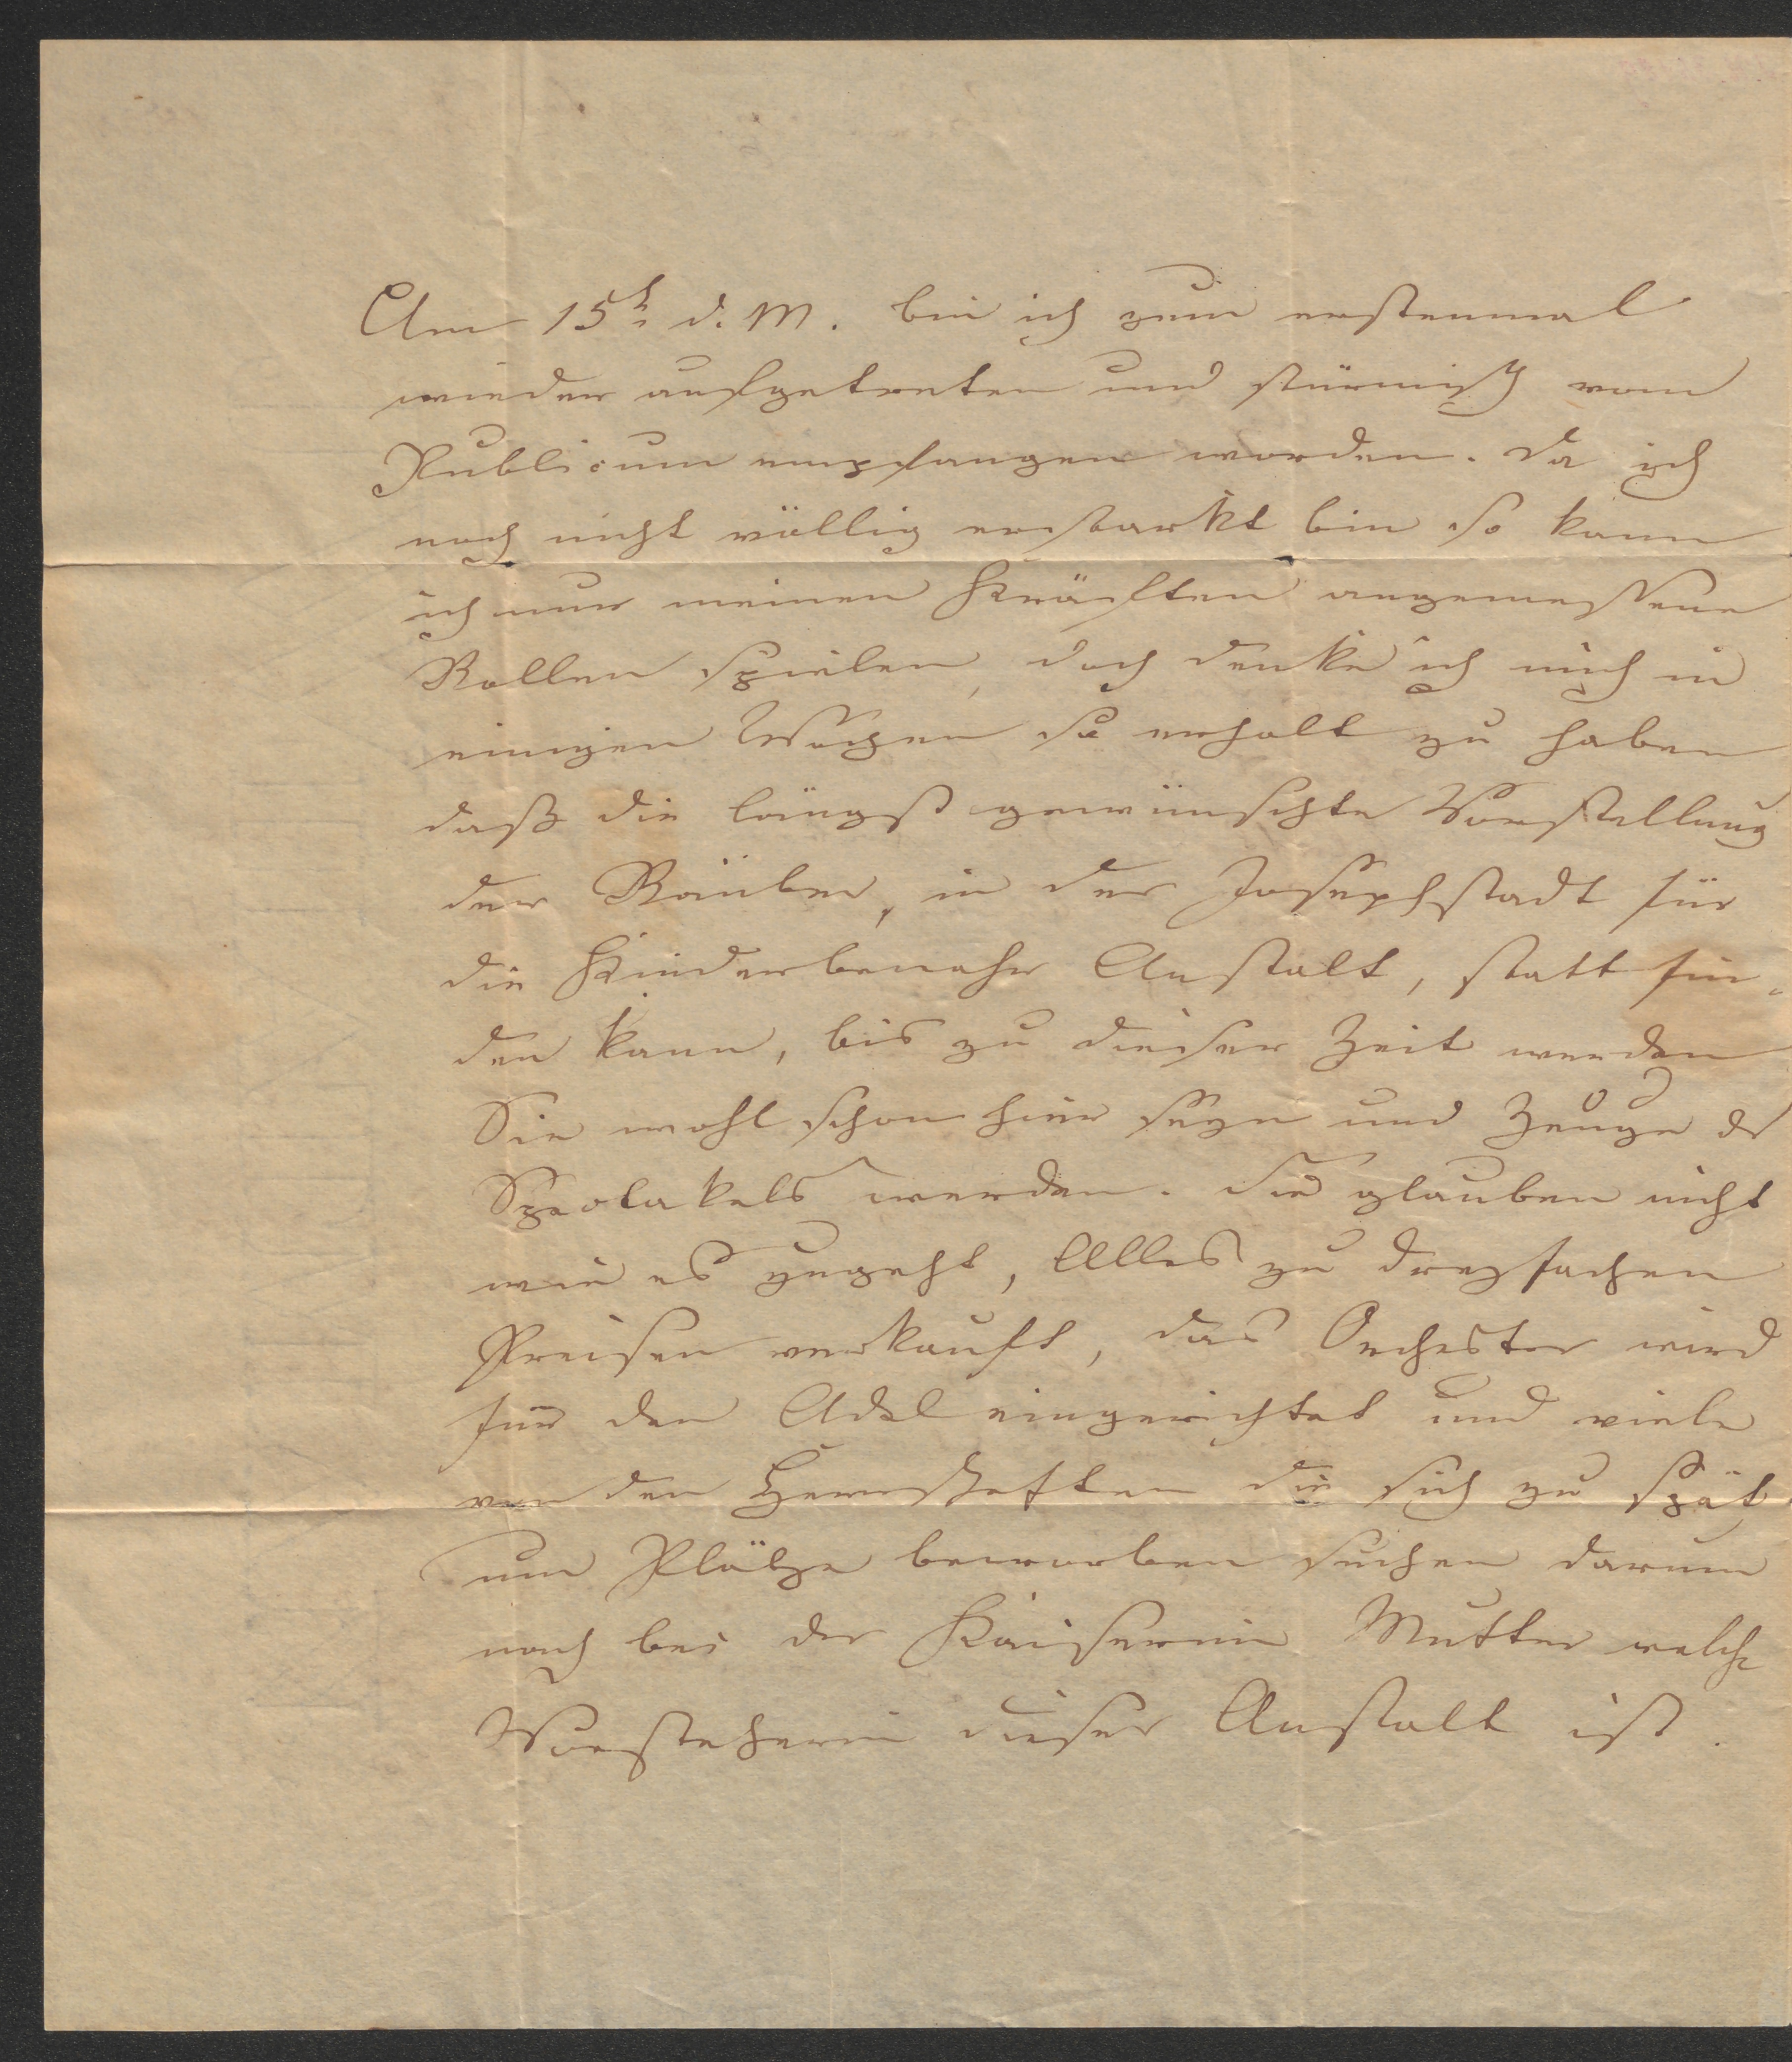 Am 15t d. M. bin ich zum erstenmal
wieder aufgetreten und stürmisch vom
Publicum empfangen worden. Da ich
noch nicht völlig erstarkt bin so kann
ich nur meinen Kräften angemessene
Rollen spielen, doch denke ich mich in
einigen Wochen so erholt zu haben
daß die längst gewünschte Vorstellung
der Räuber, in der Josephstadt für
die Kinderbewahr Anstalt, statt fin-
den kann, bis zu dieser Zeit werden
Sie wohl schon hier seyn und Zeuge ds
Spectakels werden. Sie glauben nicht
wie es zugeht, Alles zu dreyfachen
Preisen verkauft, das Orchester wird
für den Adel eingerichtet und viele
von den Herrschaften die sich zu spät
um Plätze beworben suchen darum
nach bei der Kaiserin Mutter welche
Vorsteherin dieser Anstalt ist.